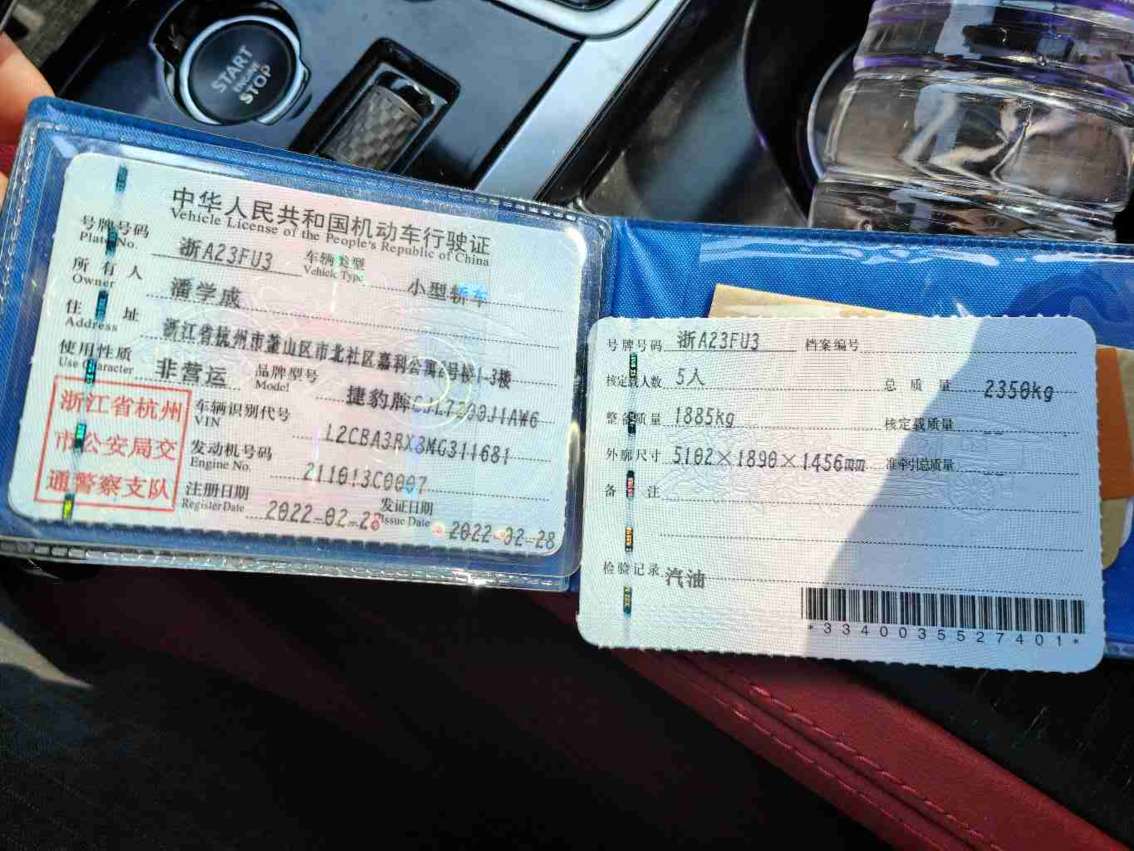 START
ENGINE
STOP
中华人民共和国机动车行驶证
Vehicle License of the People's Republic of China
号牌号码 浙A23FU3 车辆类型 小型轿车
Plate No. Vehicle Type
所有人 潘学成
Owner
住址 浙江省杭州市萧山区市北社区嘉利公寓2号楼1-3楼
Address
使用性质 非营运 品牌型号 捷豹牌
Use Character Model
浙江省杭州
市公安局交
通警察支队
车辆识别代号
VIN
发动机号码
Engine No.
注册日期 发证日期 2022-02-28
Register Date Issue Date
号牌号码 浙A23FU3 档案编号
核定载人数 5人 总质量 2350kg
整备质量 1885kg 核定载质量
外廓尺寸 5102×1890×1456mm 准牵引总质量
备注
检验记录 汽油
*3340035527401*